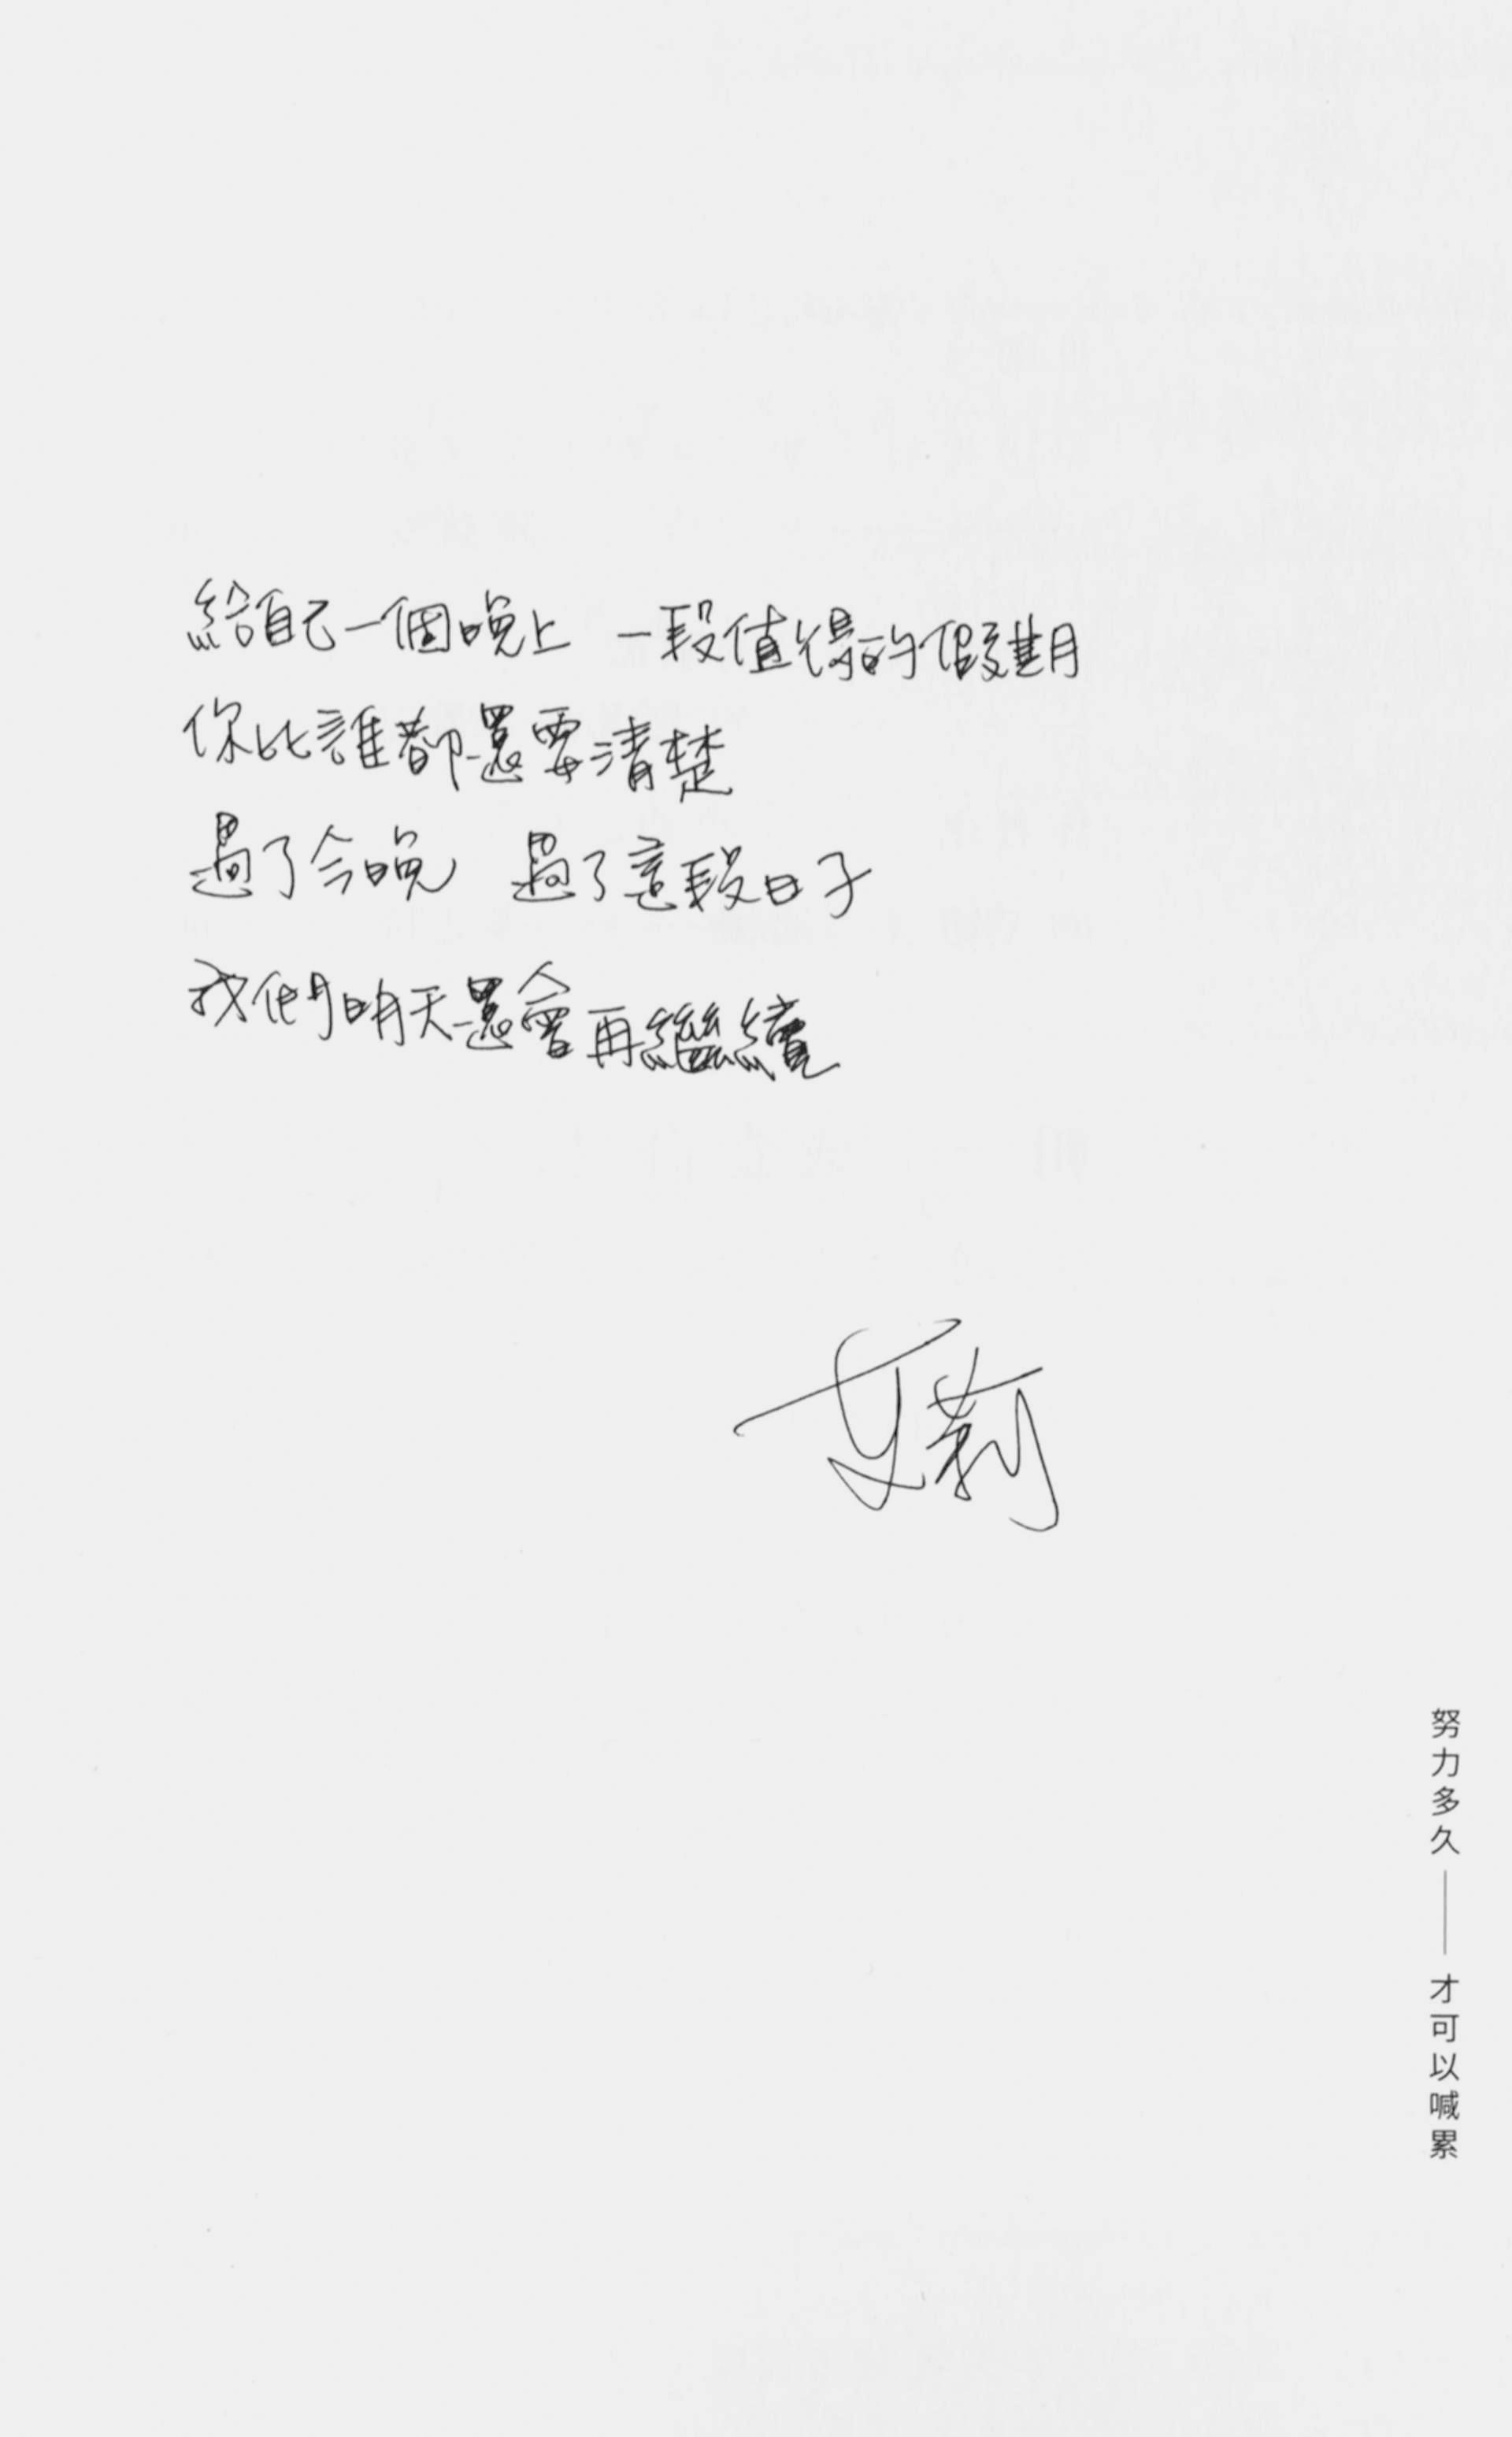 給自己一個晚上 一段值得的假期
你比誰都還要清楚
過了今晚 過了這段日子
我們明天還會再繼續
努力多久——才可以喊累